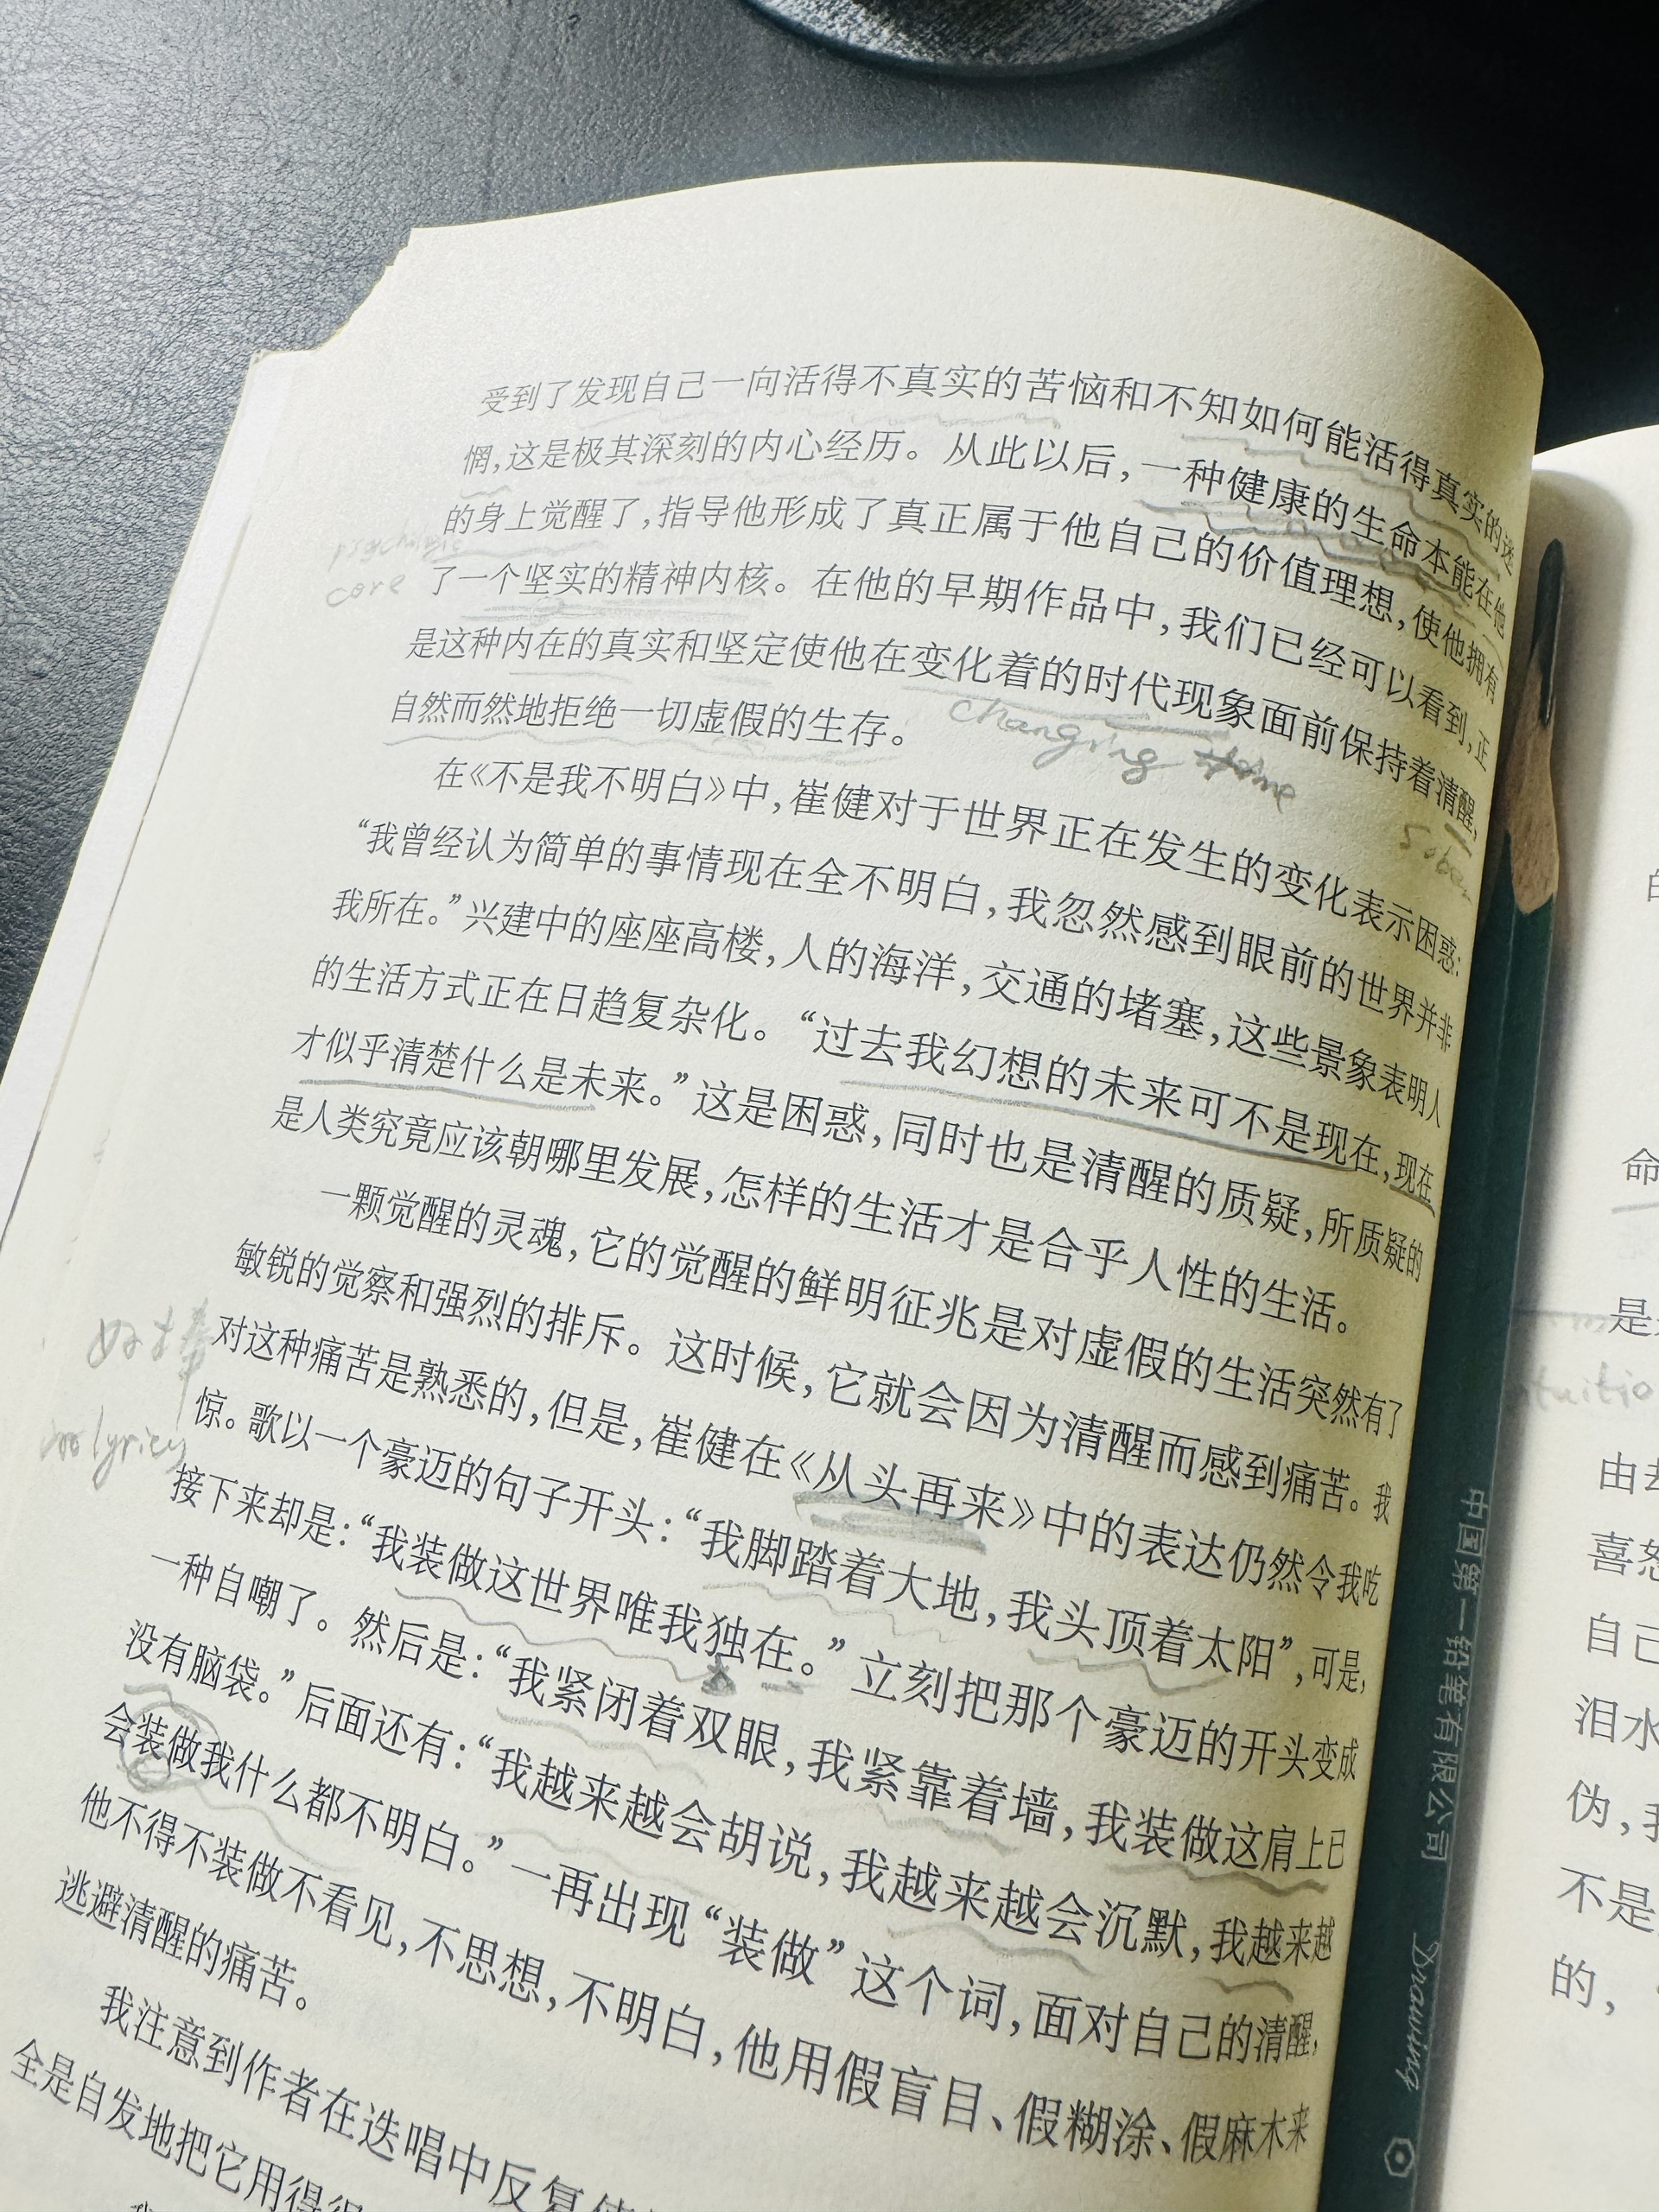 受到了发现自己一向活得不真实的苦恼和不知如何能活得真实的迷
惘，这是极其深刻的内心经历。从此以后，一种健康的生命本能在他
的身上觉醒了，指导他形成了真正属于他自己的价值理想，使他拥有
core
了一个坚实的精神内核。在他的早期作品中，我们已经可以看到，正
是这种内在的真实和坚定使他在变化着的时代现象面前保持着清醒，
changing
sober
自然而然地拒绝一切虚假的生存。
在《不是我不明白》中，崔健对于世界正在发生的变化表示困惑：
“我曾经认为简单的事情现在全不明白，我忽然感到眼前的世界并非
我所在。”兴建中的座座高楼，人的海洋，交通的堵塞，这些景象表明人
的生活方式正在日趋复杂化。“过去我幻想的未来可不是现在，现在
才似乎清楚什么是未来。”这是困惑，同时也是清醒的质疑，所质疑的
是人类究竟应该朝哪里发展，怎样的生活才是合乎人性的生活。
一颗觉醒的灵魂，它的觉醒的鲜明征兆是对虚假的生活突然有了
敏锐的觉察和强烈的排斥。这时候，它就会因为清醒而感到痛苦。我
好棒
对这种痛苦是熟悉的，但是，崔健在《从头再来》中的表达仍然令我吃
lyrics
惊。歌以一个豪迈的句子开头：“我脚踏着大地，我头顶着太阳”，可是，
接下来却是：“我装做这世界唯我独在。”立刻把那个豪迈的开头变成
一种自嘲了。然后是：“我紧闭着双眼，我紧靠着墙，我装做这肩上已
没有脑袋。”后面还有：“我越来越会胡说，我越来越会沉默，我越来越
会装做我什么都不明白。”一再出现“装做”这个词，面对自己的清醒，
他不得不装做不看见，不思想，不明白，他用假盲目、假糊涂、假麻木来
逃避清醒的痛苦。
我注意到作者在迭唱中反复使
全是自发地把它用得很
中国第一铅笔有限公司 Drawing
的
命
是
由
喜
自己
泪水
伪，我
不是
的，